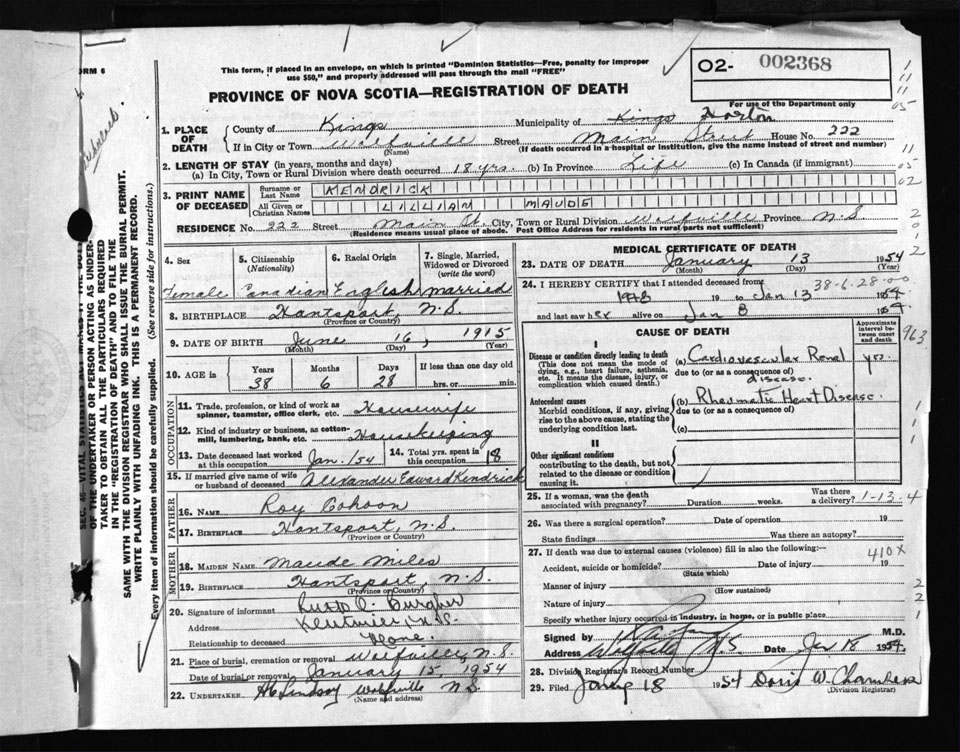 FORM 6
This form, if placed in an envelope, on which is printed "Dominion Statistics—Free, penalty for improper
use $50," and properly addressed will pass through the mail "FREE"
PROVINCE OF NOVA SCOTIA—REGISTRATION OF DEATH
O2- 002368
For use of the Department only
1. PLACE OF DEATH
County of Kings Municipality of Kings Horton
If in City or Town Wolfville Street Main Street House No. 222
(Name) (If death occurred in a hospital or institution, give the name instead of street and number)
2. LENGTH OF STAY (in years, months and days)
(a) In City, Town or Rural Division where death occurred 18 yrs. (b) In Province Life (c) In Canada (if immigrant)
3. PRINT NAME OF DECEASED
Surname or Last Name KENDRICK
All Given or Christian Names LILLIAN MAUDE
RESIDENCE No. 222 Street Main St. City, Town or Rural Division Wolfville Province N.S
(Residence means usual place of abode. Post Office Address for residents in rural parts not sufficient)
4. Sex
Female
5. Citizenship (Nationality)
Canadian
6. Racial Origin
English
7. Single, Married, Widowed or Divorced (write the word)
married
8. BIRTHPLACE Hantsport, N.S.
(Province or Country)
9. DATE OF BIRTH June 16, 1915
(Month) (Day) (Year)
10. AGE in Years Months Days If less than one day old
38 6 28 hrs. or min.
OCCUPATION
11. Trade, profession, or kind of work as spinner, teamster, office clerk, etc. Housewife
12. Kind of industry or business, as cotton-mill, lumbering, bank, etc. Housekeeping
13. Date deceased last worked at this occupation Jan./54
14. Total yrs. spent in this occupation 18
15. If married give name of wife or husband of deceased Alexander Edward Kendrick
FATHER
16. NAME Roy Cohoon
17. BIRTHPLACE Hantsport, N.S.
(Province or Country)
MOTHER
18. MAIDEN NAME Maude Miles
19. BIRTHPLACE Hantsport, N.S.
(Province or Country)
20. Signature of informant
Address N.S.
Relationship to deceased None.
21. Place of burial, cremation or removal Wolfville, N.S.
Date of burial or removal January 15, 1954
22. UNDERTAKER Lindsay Wolfville N.S.
(Name and address)
MEDICAL CERTIFICATE OF DEATH
23. DATE OF DEATH January 13 1954
(Month) (Day) (Year)
24. I HEREBY CERTIFY that I attended deceased from 38-6-28-00
19 to Jan 13 1954
and last saw her alive on Jan 8 1954
CAUSE OF DEATH
Approximate interval between onset and death
I
Disease or condition directly leading to death
(This does not mean the mode of dying, e.g., heart failure, asthenia, etc. It means the disease, injury, or complication which caused death.)
(a) Cardiovascular Renal disease. yrs.
due to (or as a consequence of)
Antecedent causes
Morbid conditions, if any, giving rise to the above cause, stating the underlying condition last.
(b) Rheumatic Heart Disease.
due to (or as a consequence of)
(c)
II
Other significant conditions
contributing to the death, but not related to the disease or condition causing it.
25. If a woman, was the death associated with pregnancy? Duration weeks. Was there a delivery? 1-13-4
26. Was there a surgical operation? Date of operation 19
State findings Was there an autopsy?
27. If death was due to external causes (violence) fill in also the following:— 410X
Accident, suicide or homicide? Date of injury 19
(State which)
Manner of injury
(How sustained)
Nature of injury
Specify whether injury occurred in industry, in home, or in public place
Signed by M.D.
Address Wolfville N.S Date Jan 18 1954.
28. Division Registrar's Record Number
29. Filed Jany 18 1954 Doris W. Chambers
(Division Registrar)
OF THE UNDERTAKER OR PERSON ACTING AS UNDER-
TAKER TO OBTAIN ALL THE PARTICULARS REQUIRED
IN THE "REGISTRATION OF DEATH" AND TO FILE THE
SAME WITH THE DIVISION REGISTRAR WHO SHALL ISSUE THE BURIAL PERMIT.
WRITE PLAINLY WITH UNFADING INK. THIS IS A PERMANENT RECORD.
Every item of information should be carefully supplied. (See reverse side for instructions.)